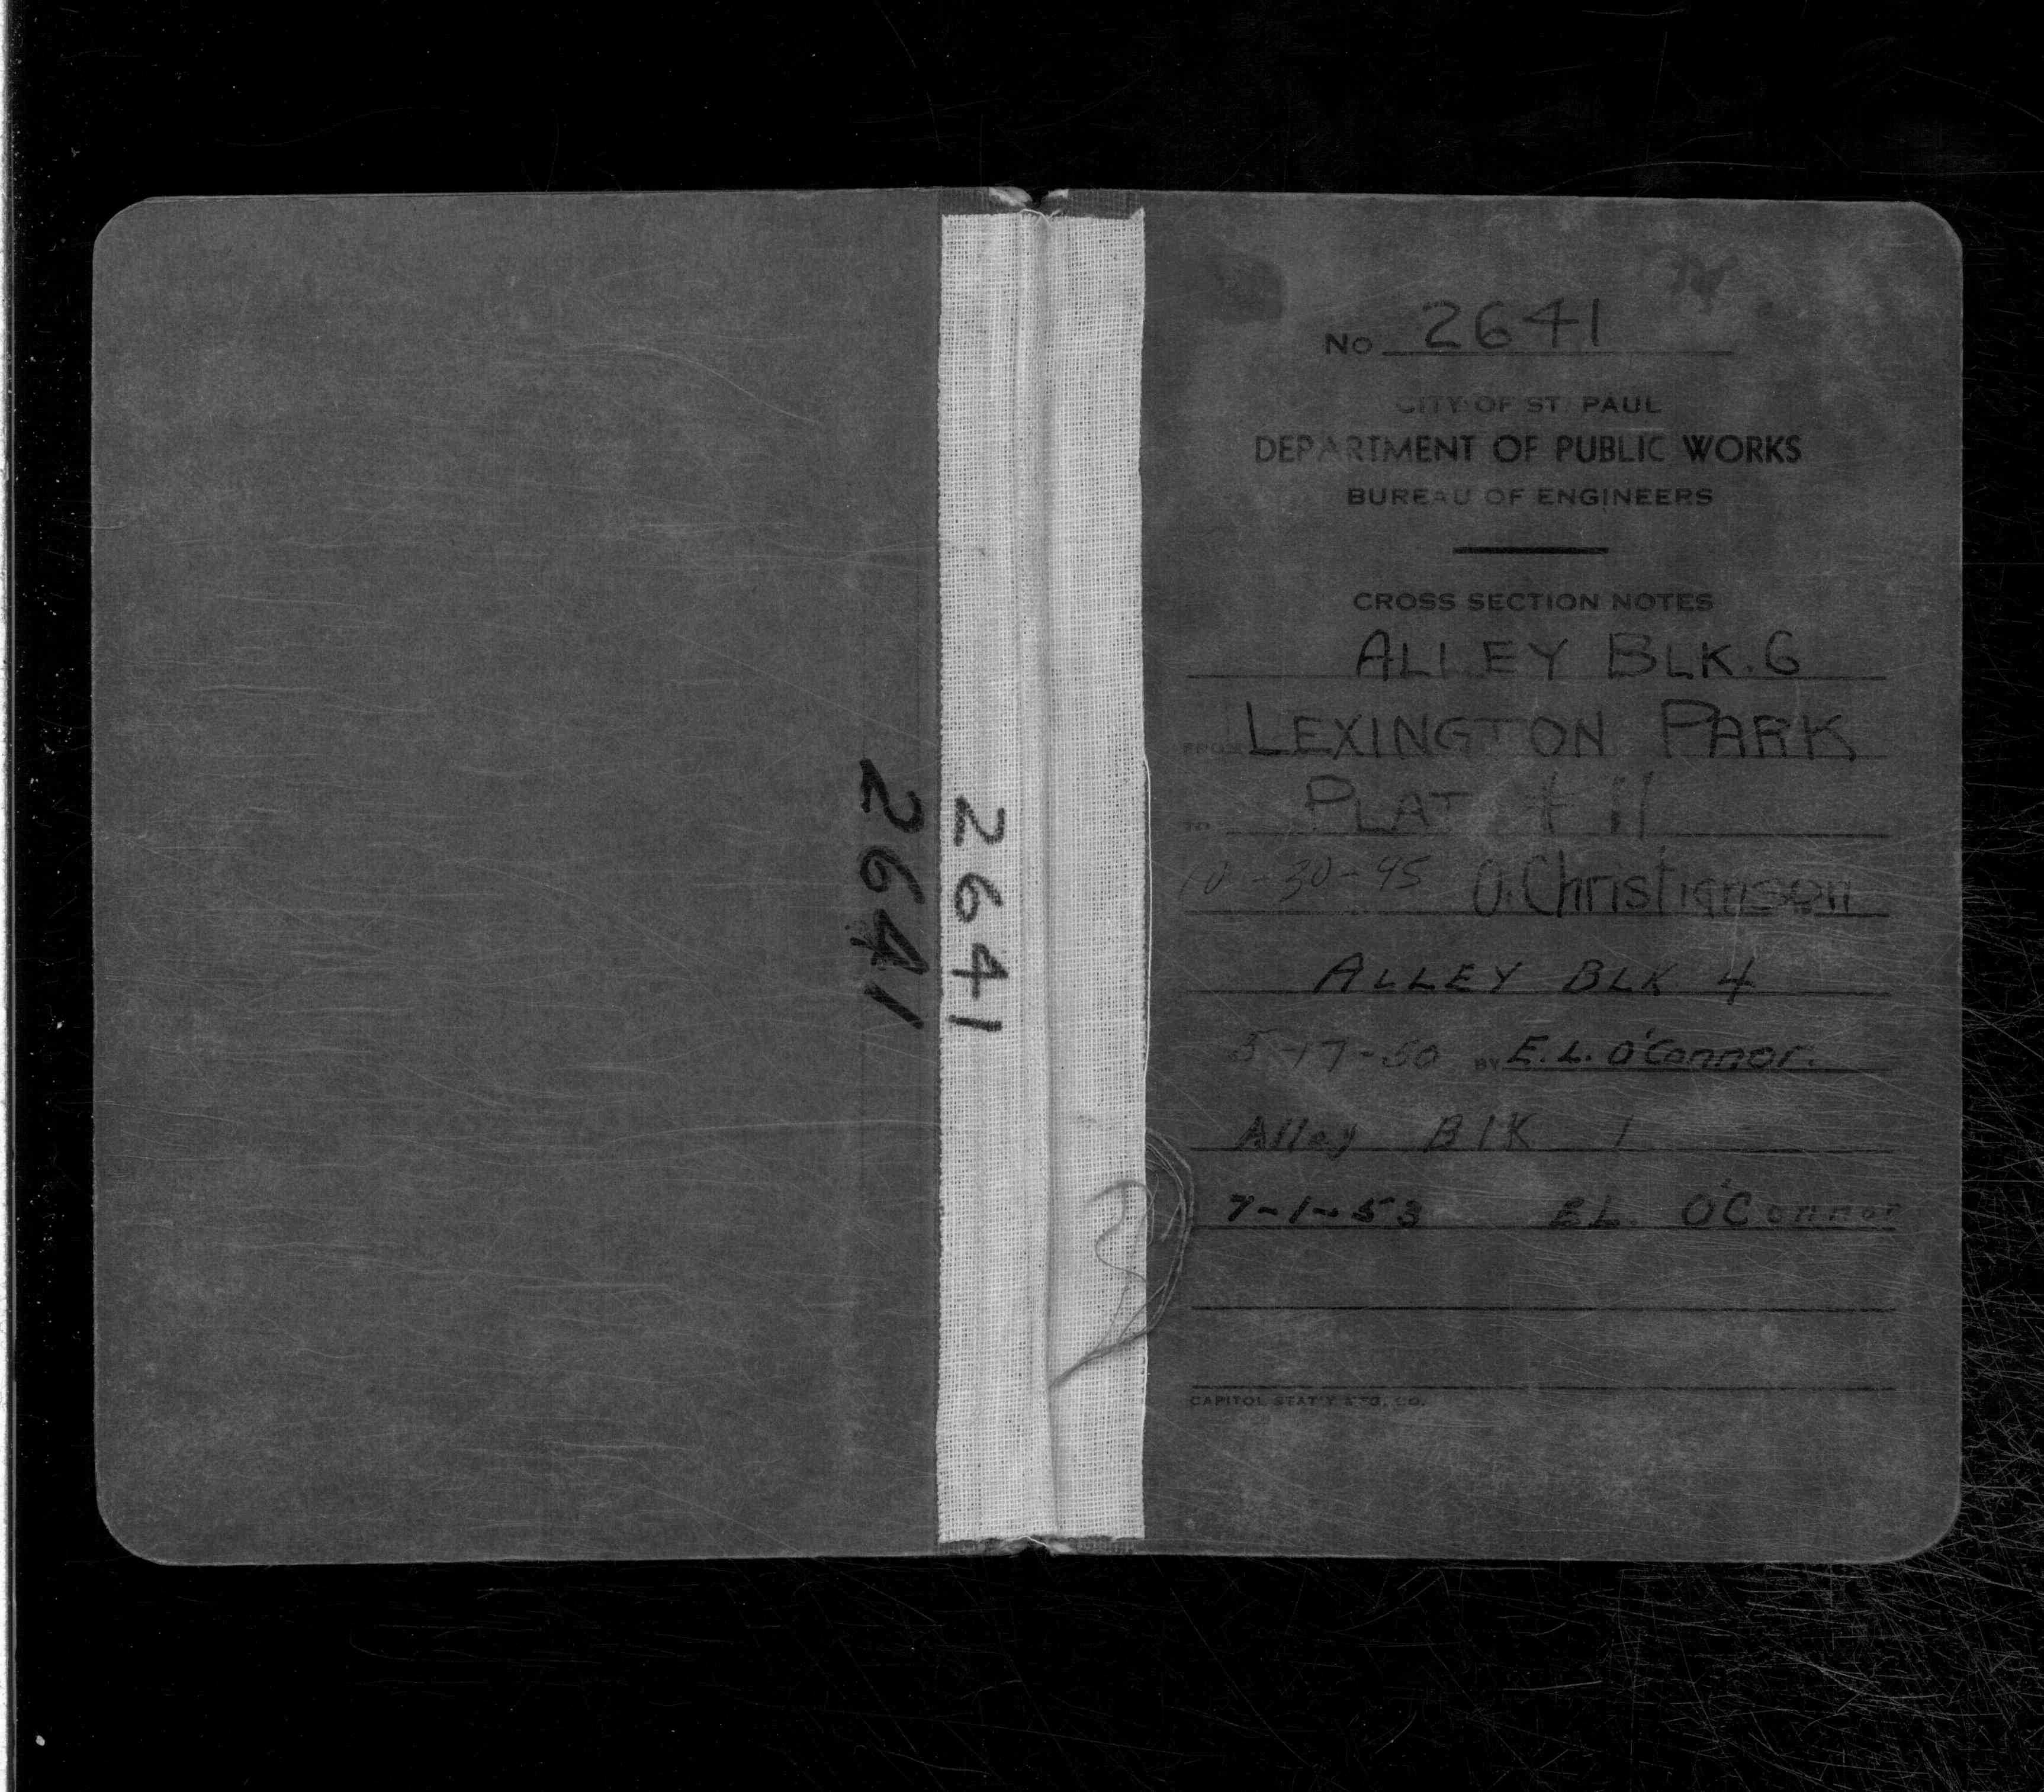 2641
2641
No 2641
CITY OF ST. PAUL
DEPARTMENT OF PUBLIC WORKS
BUREAU OF ENGINEERS
CROSS SECTION NOTES
ALLEY BLK. 6
FROM LEXINGTON PARK
TO PLAT 11
10-30-45 O. Christianson
ALLEY BLK 4
5-17-50 BY E. L. O'Connor.
Alley BlK 1
7-1-53 EL. O'Connor
CAPITOL STAT'Y MFG. CO.